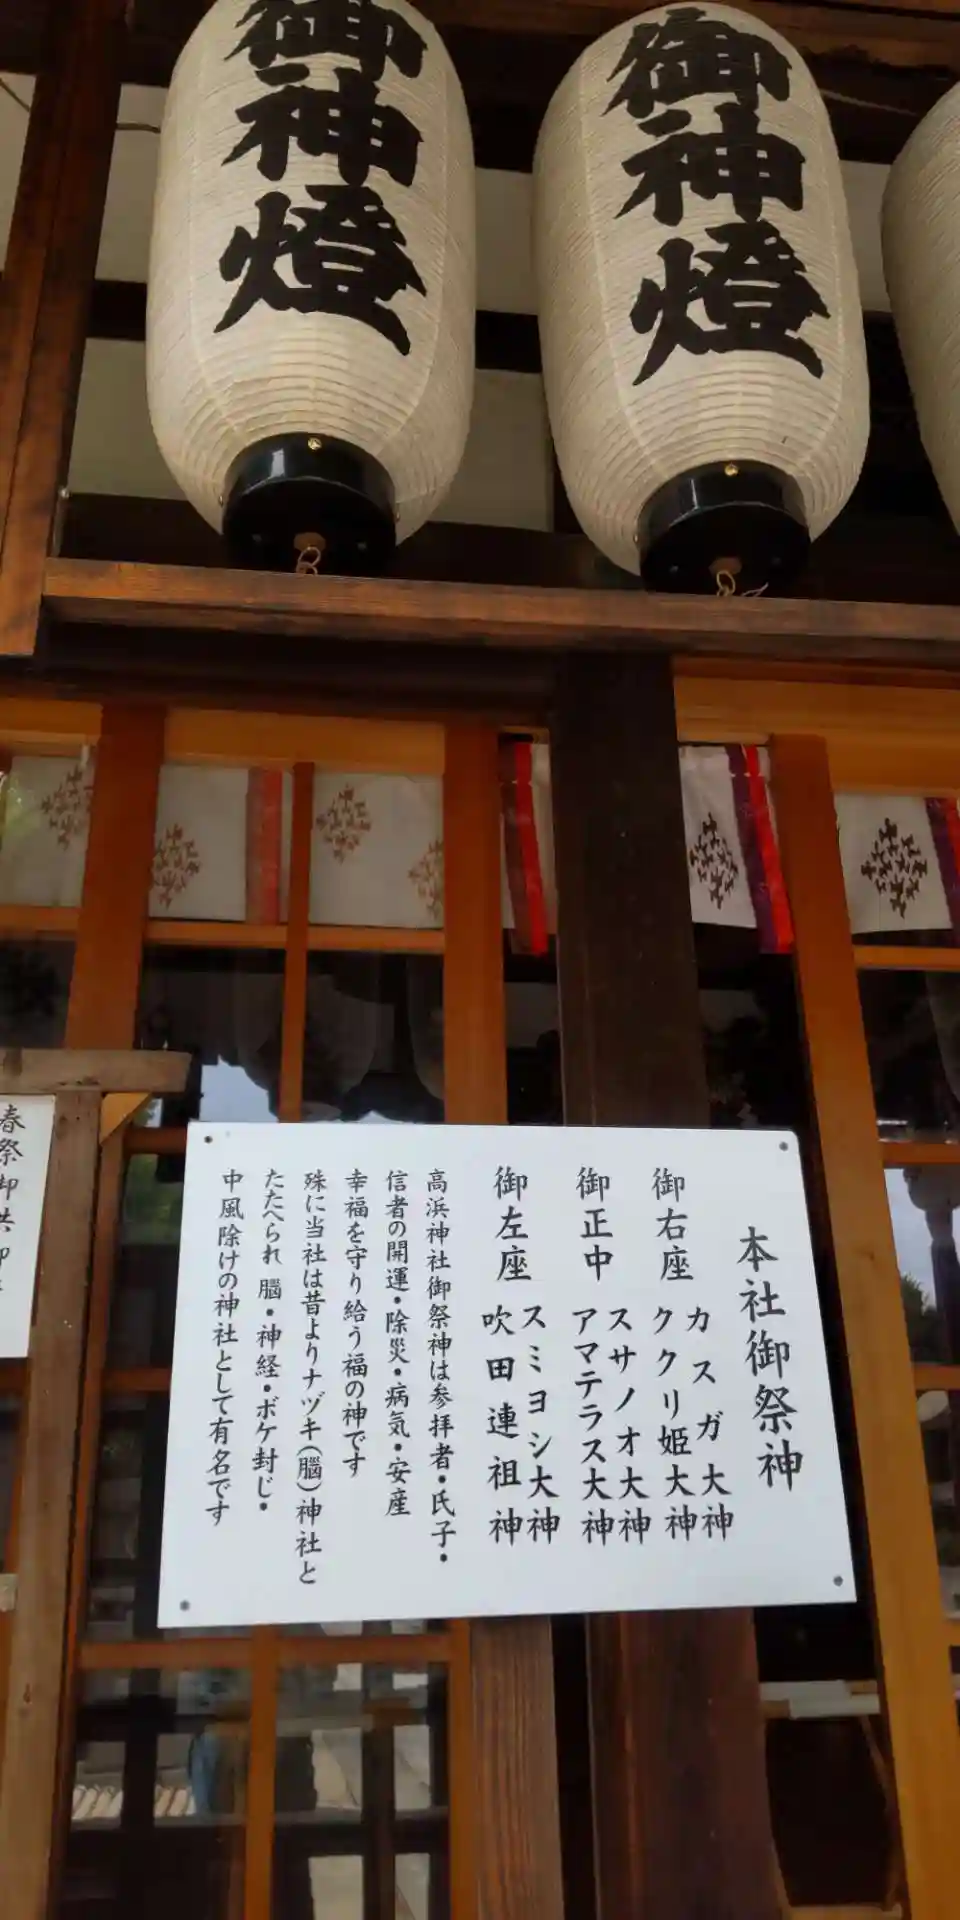 御神燈
御神燈
本社御祭神
御右座
カスガ大神
ククリ姫大神
御正中
スサノオ大神
アマテラス大神
御左座
スミヨシ大神
吹田連祖神
高浜神社御祭神は参拝者・氏子・
信者の開運・除災・病気・安産
幸福を守り給う福の神です
殊に当社は昔よりナヅキ(腦)神社と
たたへられ 腦・神経・ボケ封じ・
中風除けの神社として有名です
春祭御供御